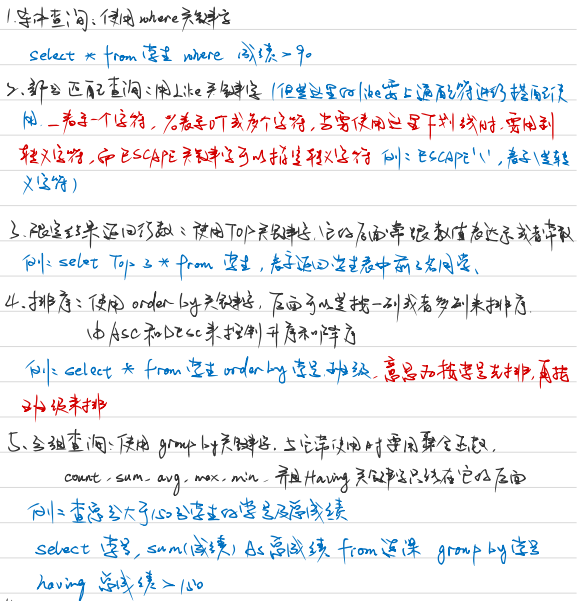 1.条件查询：使用where关键字
select * from 学生 where 成绩>90
2.部分匹配查询：用Like关键字（但是这里的like需上通配符进行搭配使
用 _表示一个字符，%表示0个或多个字符，当需使用这里下划线时，需用到
转义字符，而ESCAPE关键字可以指定转义字符 例：ESCAPE'\'，表示\是转
义字符）
3.限定结果返回行数：使用TOP关键字，它的后面常跟数值表达示或者常数
例：select Top 3 * from 学生，表示返回学生表中前3名同学、
4.排序：使用order by关键字，后面可以是按一列或者多列来排序
由Asc和Desc来控制升序和降序
例：select * from 学生 order by 学号，班级，意思为按学号先排，再按
班级来排
5.分组查询：使用group by关键字，与它常使用时要用聚合函数，
count、sum、avg、max、min、并且Having关键字只能在它的后面
例：查总分大于150分学生的学号及总成绩
select 学号，sum(成绩) As 总成绩 from 选课 group by 学号
having 总成绩>150